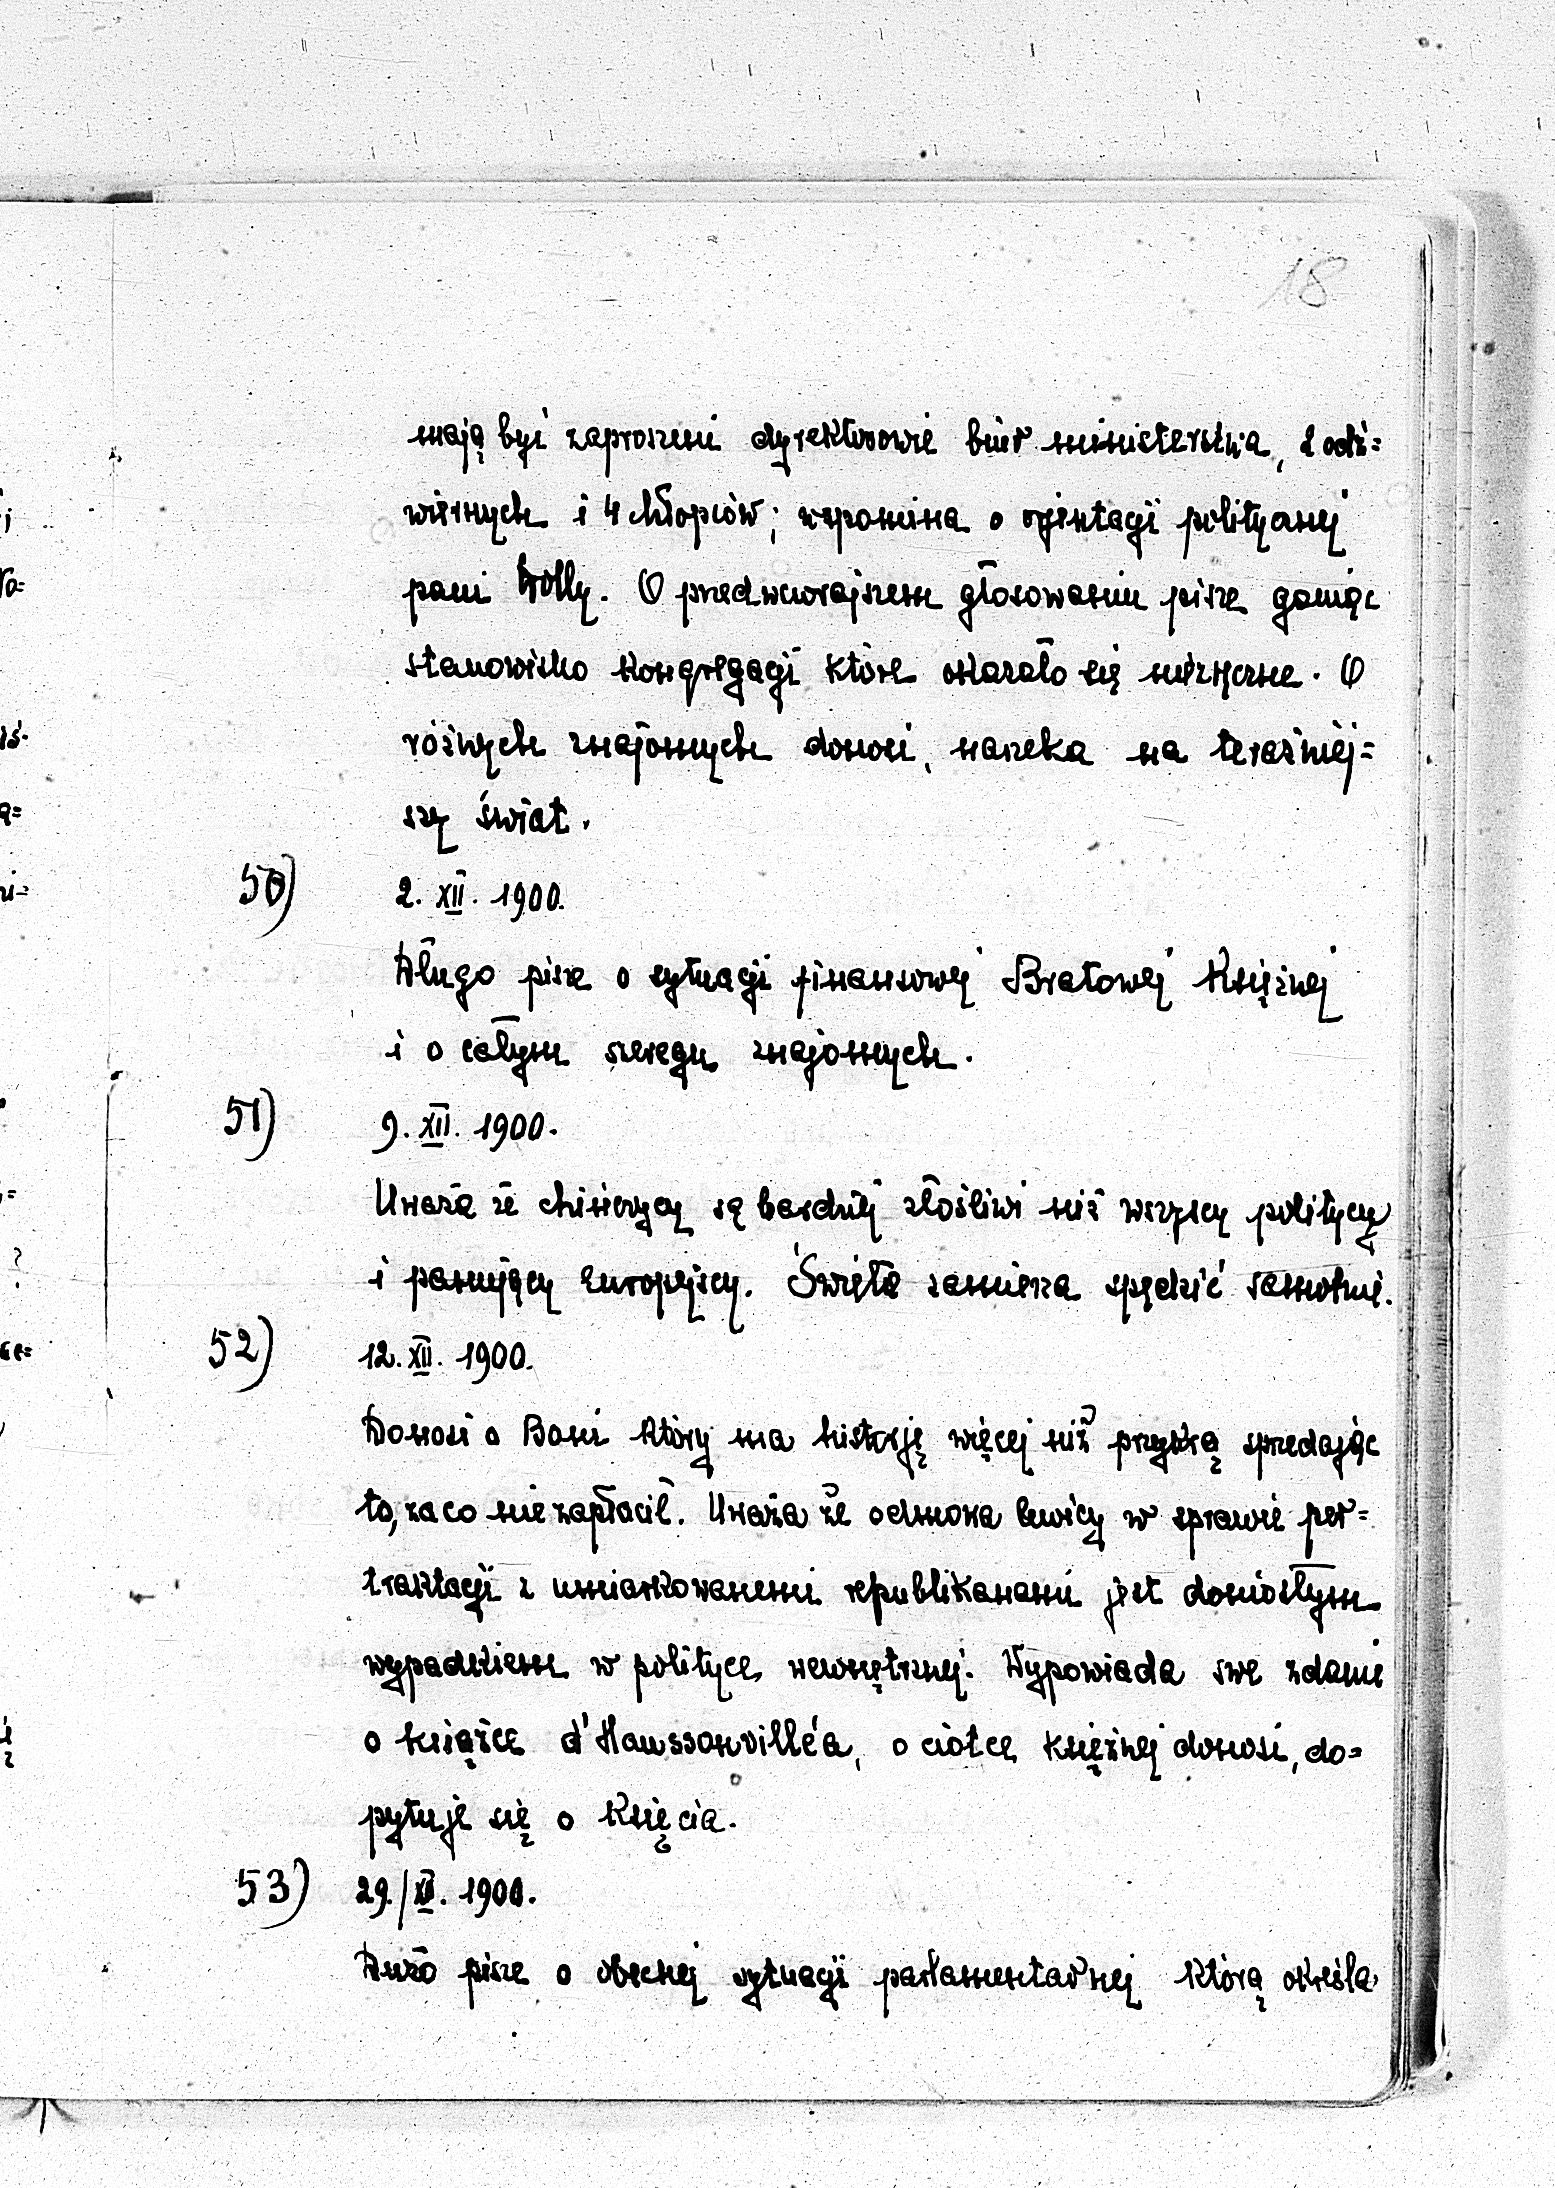 18
mają być zaproszeni dyrektorowie biur ministerstwa, 2 odź=
wiernych i 4 chłopców; wspomina o orjentacji politycznej
pani Dolly. O przedwczorajszem głosowaniu pisze ganiąc
stanowisko kongregacji które okazało się niezręczne. O
różnych znajomych donosi, narzeka na teraźniej=
szy świat.
50) 2. XII. 1900.
Długo pisze o sytuacji finansowej Bratowej Księżnej
i o całym szeregu znajomych.
51) 9. XII. 1900.
Uważa że chińczycy są bardziej złośliwi niż wszyscy politycy
i panujący europejscy. Święta zamierza spędzić samotnie.
52) 12. XII. 1900.
Donosi o Boni który ma historję więcej niż przykrą sprzedając
to, za co nie zapłacił. Uważa że odmowa lewicy w sprawie per=
traktacji z umiarkowanemi republikanami jest doniosłym
wypadkiem w polityce wewnętrznej. Wypowiada swe zdanie
o książce d'Haussonville'a, o ciotce księżnej donosi, do=
pytuje się o Księcia.
53) 29./XII. 1900.
Dużo pisze o obecnej sytuacji parlamentarnej którą określa